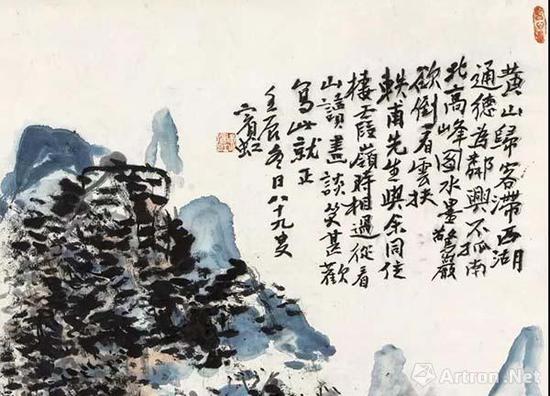 黄山歸客滯西湖
通德為鄰興不孤南
北高峰圖水墨驚巖
欲倒看雲扶
軼甫先生與余同住
棲霞嶺時相過從看
山讀畫談笑甚歡
寫此就正
壬辰冬日八十九叟
賓虹
Artron.Net